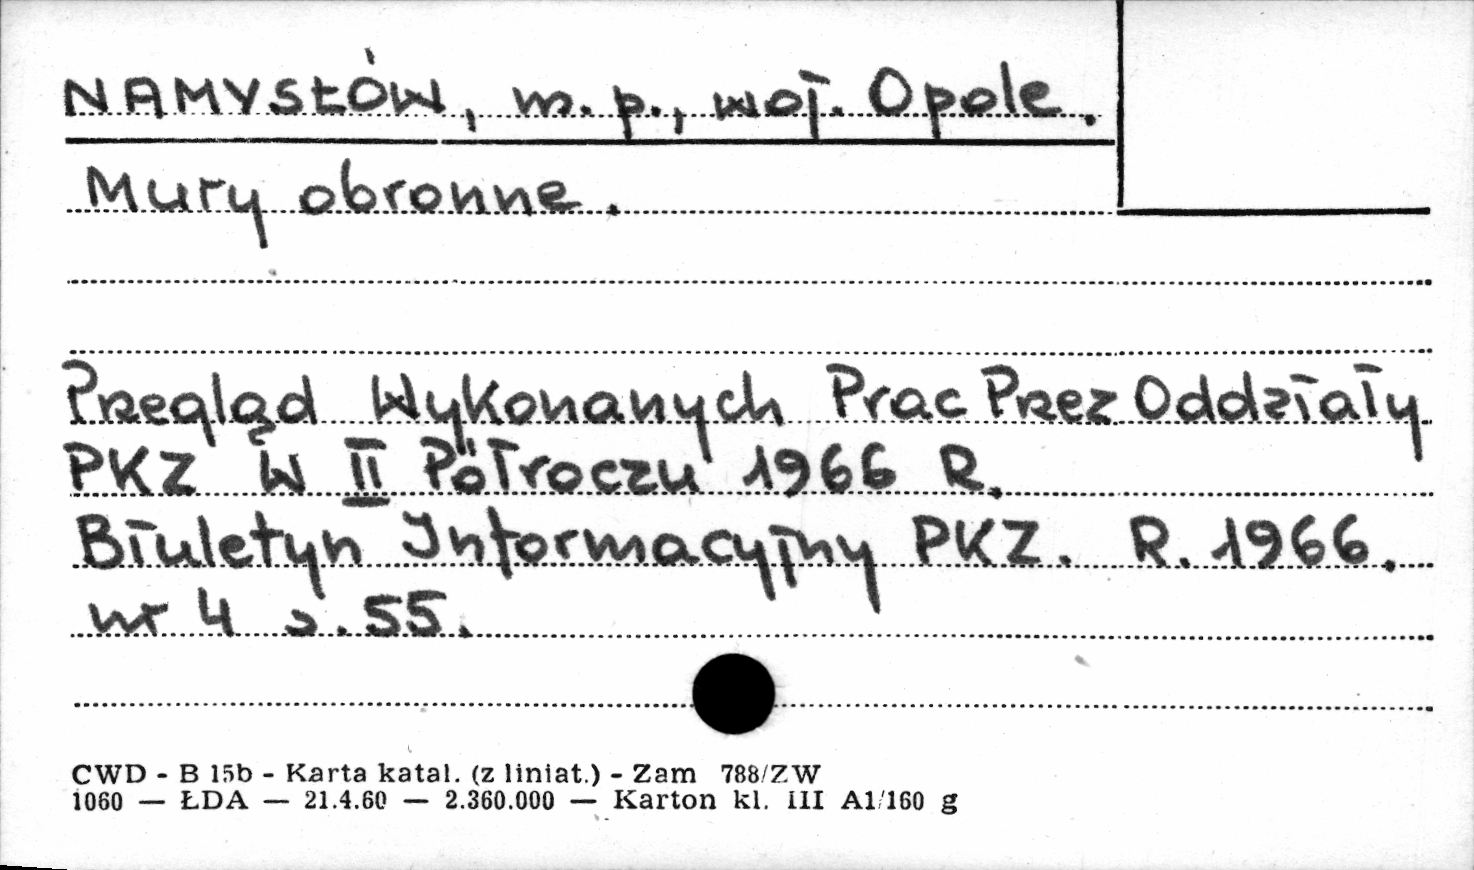 NAMYSŁÓW, m. p., woj. Opole.
Mury obronne.
Przegląd Wykonanych Prac Przez Oddziały
PKZ W II Półroczu 1966 R.
Biuletyn Informacyjny PKZ. R. 1966.
nr 4 s. 55.
CWD - B 15b - Karta katal. (z liniat.) - Zam 788/ZW
1060 — ŁDA — 21.4.60 — 2.360.000 — Karton kl. III A1/160 g